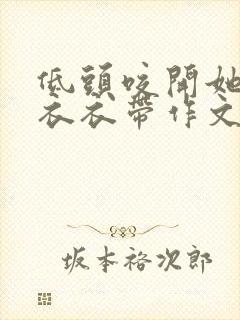 低頭咬開她
衣衣帶作文
坂本裕次郎